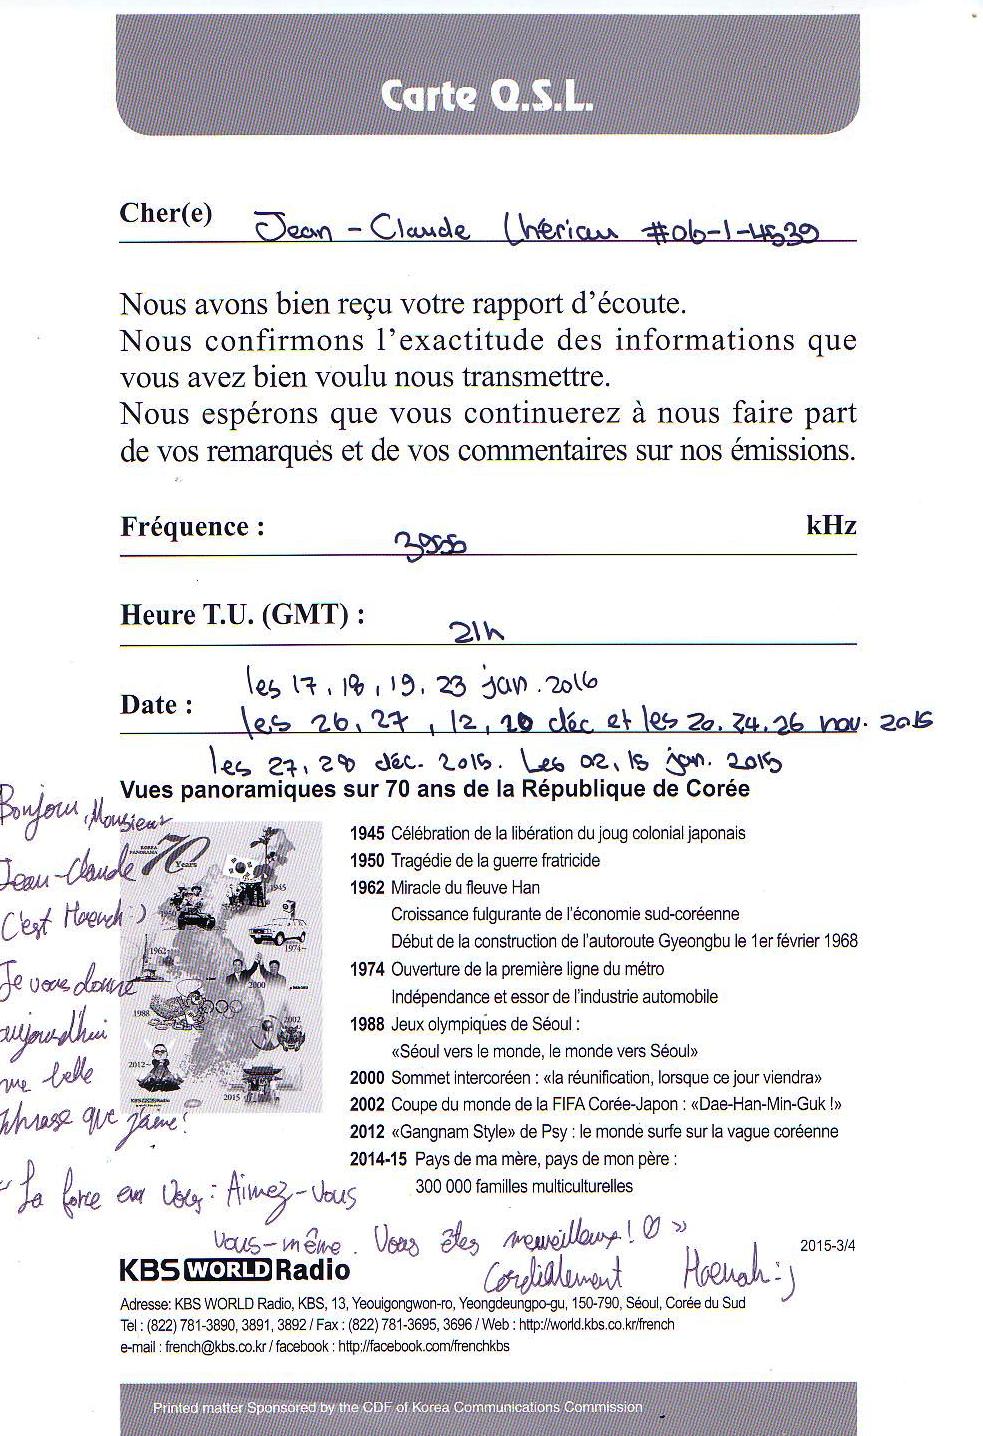 Carte Q.S.L.
Cher(e) Jean-Claude Lhérieau #06-1-4539
Nous avons bien reçu votre rapport d'écoute.
Nous confirmons l'exactitude des informations que
vous avez bien voulu nous transmettre.
Nous espérons que vous continuerez à nous faire part
de vos remarques et de vos commentaires sur nos émissions.
Fréquence : 3955 kHz
Heure T.U. (GMT) : 21h
les 17, 18, 19, 23 jan. 2016
Date : les 26, 27, 12, 20 déc et les 20, 24, 26 nov. 2015
les 27, 28 déc. 2015. Les 02, 15 jan. 2015
Vues panoramiques sur 70 ans de la République de Corée
Bonjour, Monsieur
Jean-Claude
C'est :)
Je vous donne
aujourd'hui
une belle
phrase que j'aime!
KOREA
PANORAMA
70
Years
1945
1962
1974
2000
1988
2002
2012
2015
1945 Célébration de la libération du joug colonial japonais
1950 Tragédie de la guerre fratricide
1962 Miracle du fleuve Han
Croissance fulgurante de l'économie sud-coréenne
Début de la construction de l'autoroute Gyeongbu le 1er février 1968
1974 Ouverture de la première ligne du métro
Indépendance et essor de l'industrie automobile
1988 Jeux olympiques de Séoul :
«Séoul vers le monde, le monde vers Séoul»
2000 Sommet intercoréen : «la réunification, lorsque ce jour viendra»
2002 Coupe du monde de la FIFA Corée-Japon : «Dae-Han-Min-Guk !»
2012 «Gangnam Style» de Psy : le monde surfe sur la vague coréenne
2014-15 Pays de ma mère, pays de mon père :
300 000 familles multiculturelles
"La force en vous : Aimez-vous
vous-même. Vous êtes merveilleux! ♡ »
Cordialement :)
2015-3/4
KBS WORLD Radio
Adresse: KBS WORLD Radio, KBS, 13, Yeouigongwon-ro, Yeongdeungpo-gu, 150-790, Séoul, Corée du Sud
Tel : (822) 781-3890, 3891, 3892 / Fax : (822) 781-3695, 3696 / Web : http://world.kbs.co.kr/french
e-mail : french@kbs.co.kr / facebook : http://facebook.com/frenchkbs
Printed matter Sponsored by the CDF of Korea Communications Commission